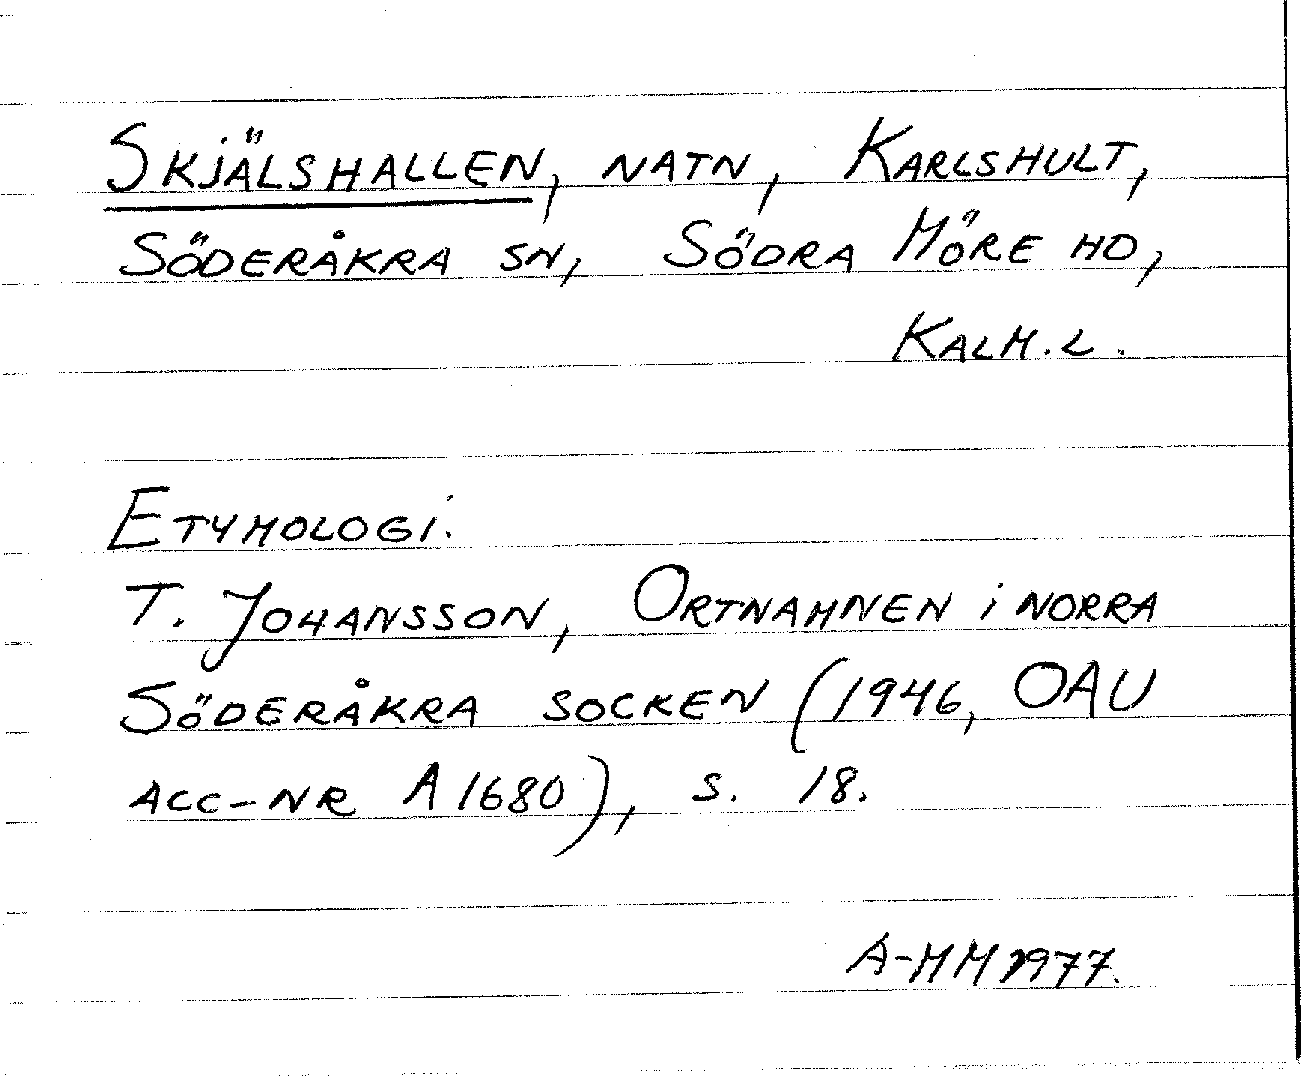 SKJÄLSHALLEN, NATN, KARLSHULT,
SÖDERÅKRA SN, SÖDRA MÖRE HD,
KALM. L.
ETYMOLOGI.
T. JOHANSSON, ORTNAMNEN i NORRA
SÖDERÅKRA SOCKEN (1946, OAU
ACC-NR A 1680), S. 18.
A-MM 1977.